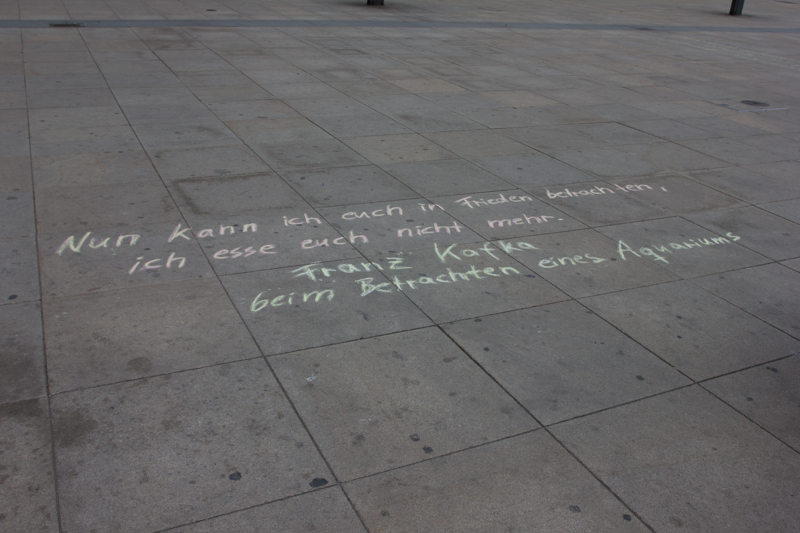 Nun kann ich euch in Frieden betrachten,
ich esse euch nicht mehr.
Franz Kafka
beim Betrachten eines Aquariums